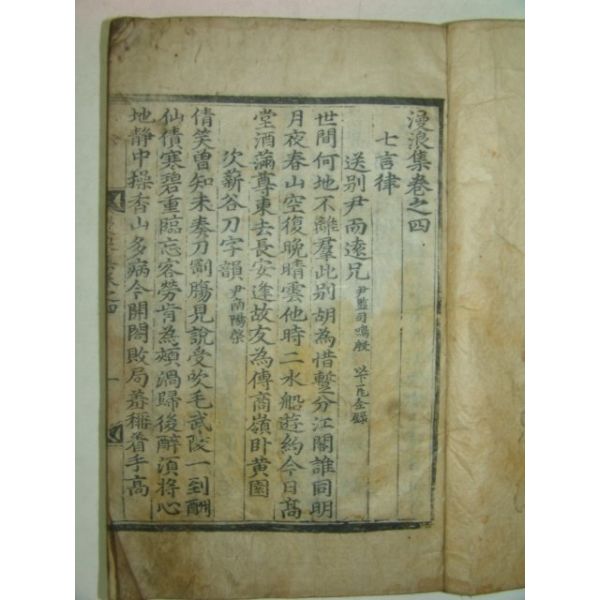 漫浪集卷之四
七言律
送別尹而遠兄 尹監司鳴殷
世間何地不離羣此別胡為惜暫分江閣誰同明
月夜春山空復晚晴雲他時二水船遊約今日高
堂酒滿尊東去長安逢故友為傳商嶺卧黃園
次薪谷刀字韻 尹南陽棨
倩笑曾知未奏刀劉膓見說受吹毛武陵一到酬
仙債寒碧重臨忘客勞肯為頰渦歸後醉須將心
地靜中操香山多病今開閤敗局着手高